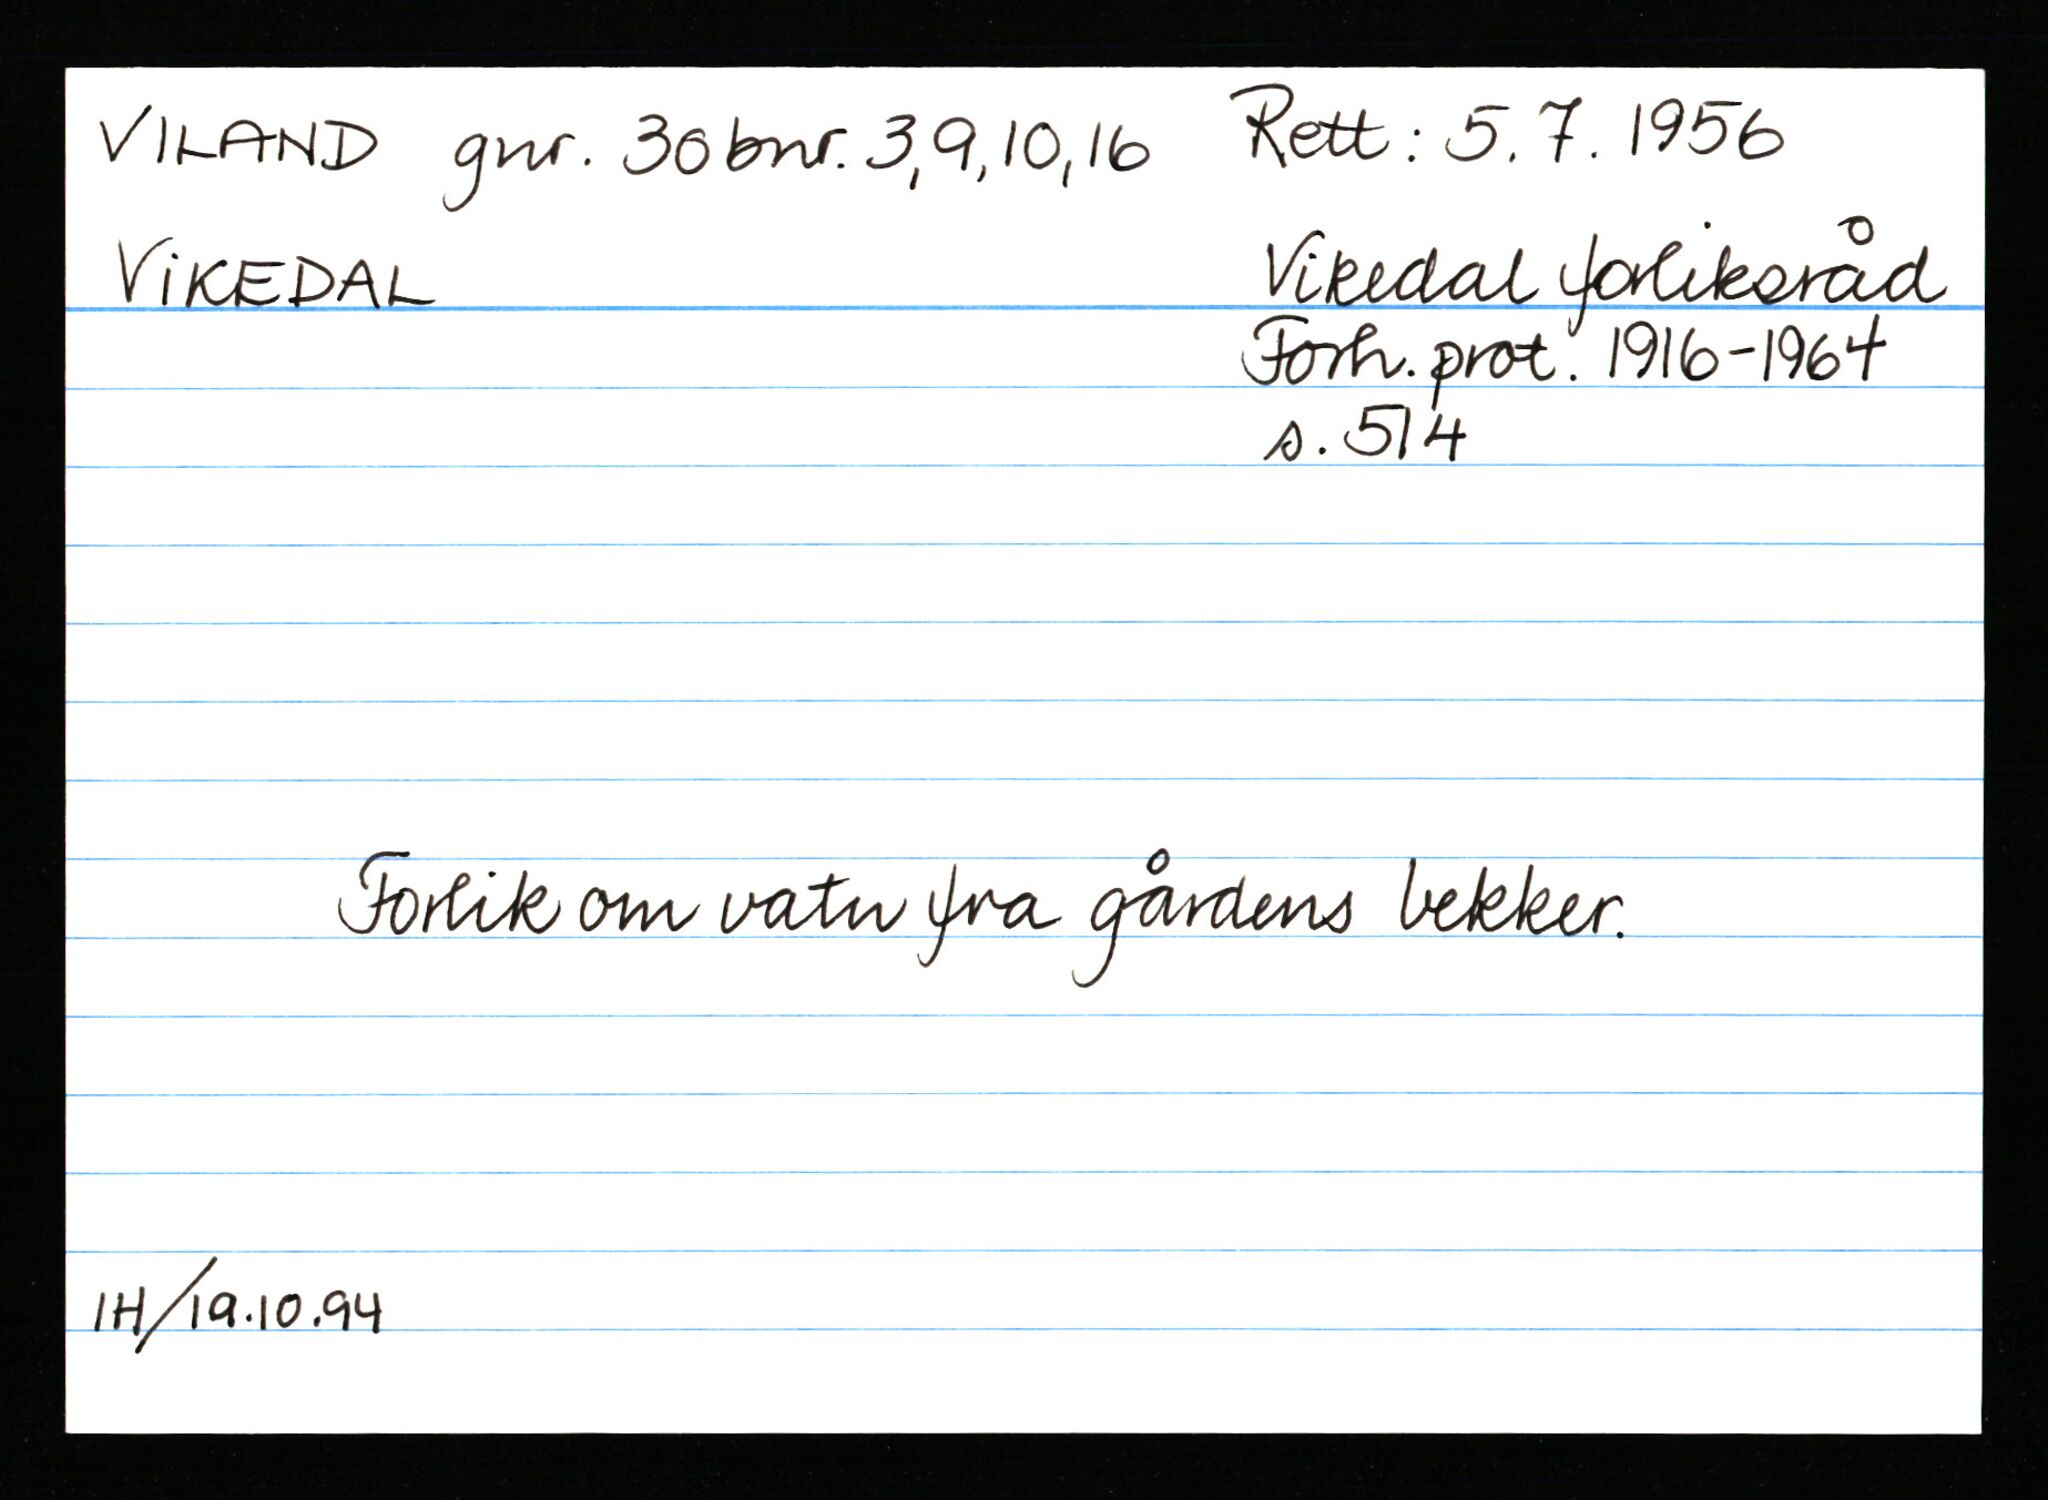 VILAND gnr. 30 bnr. 3,9,10,16 Rett: 5.7.1956
VIKEDAL
Vikedal forliksråd
Forh. prot. 1916-1964
s. 514
Forlik om vatn fra gårdens bekker.
IH/19.10.94